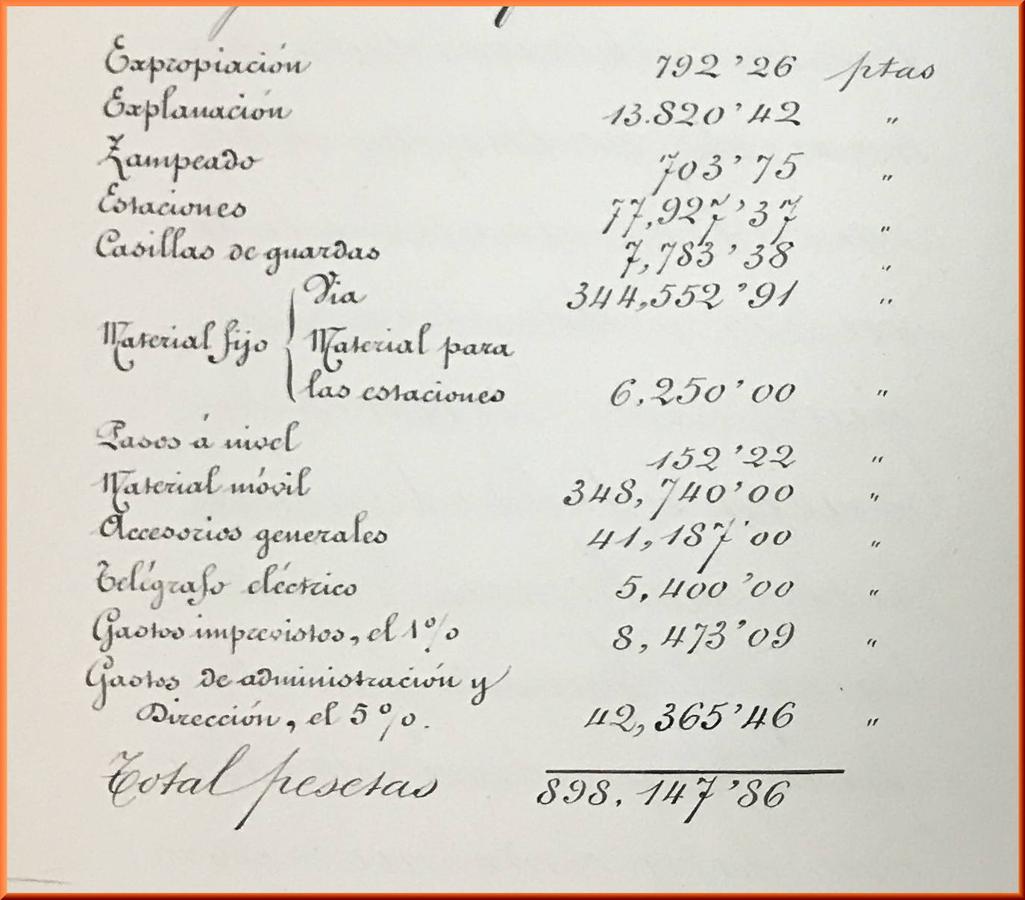 Expropiación 792'26 ptas
Explanación 13.820'42 "
Zampeado 703'75 "
Estaciones 77,927'37 "
Casillas de guardas 7,783'38 "
Via 344,552'91 "
Material fijo { Material para
las estaciones 6,250'00 "
Pasos á nivel 152'22 "
Material móvil 348,740'00 "
Accesorios generales 41,187'00 "
Telégrafo eléctrico 5,400'00 "
Gastos imprevistos, el 1% 8,473'09 "
Gastos de administración y
Dirección, el 5%. 42,365'46 "
Total pesetas 898.147'86